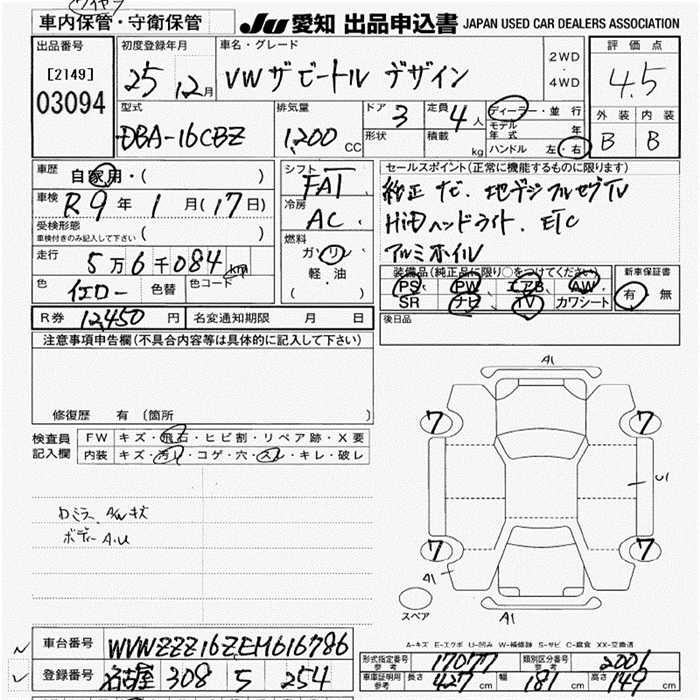 車内保管・守衛保管
JU 愛知 出品申込書 JAPAN USED CAR DEALERS ASSOCIATION
出品番号
[2149]
03094
初度登録年月
25 12月
車名・グレード
VW ザ ビートル デザイン
2WD
・
4WD
評価点
4.5
外装 内装
B B
型式
DBA-16CBZ
排気量
1,200 CC
ドア 3
形状
定員 4 人
積載 kg
ディーラー・並行
モデル年式 年
ハンドル 左・右
車歴 自家用・( )
車検 R9年 1月(17日)
受検形態
車検付きのみ記入して下さい ( )
走行 5万6千084 km
色 イエロー 色替 色コード
シフト FAT
冷房 AC
燃料
ガソリン
軽・油
( )
セールスポイント(正常に機能するものに限ります)
純正ナビ. 地デジフルセグTV
HiDヘッドライト. ETC
アルミホイル
装備品(純正品に限り○をつけてください)
PS PW エアB AW
SR ナビ TV カワシート
新車保証書
有・無
後日品
R券 12,450 円 名変通知期限 月 日
注意事項申告欄(不具合内容等は具体的に記入して下さい)
修復歴 有 (箇所 )
検査員記入欄
FW キズ・飛石・ヒビ割・リペア跡・X要
内装 キズ・汚レ・コゲ・穴・スレ・キレ・破レ
ロミラ. AWキズ
ボディーA.U
A1
7 7
U1
7 7
A1
スペア
A1
A-キズ E-エクボ U-凹み W-補修跡 S-サビ C-腐食 XX-交換済
車台番号 WVWZZZ16ZEM616786
登録番号 名古屋 308 5 254
形式指定番号 参考 17077 類別区分番号 参考 2006
車庫証明用 参考 長さ 427 cm 幅 181 cm 高さ 149 cm